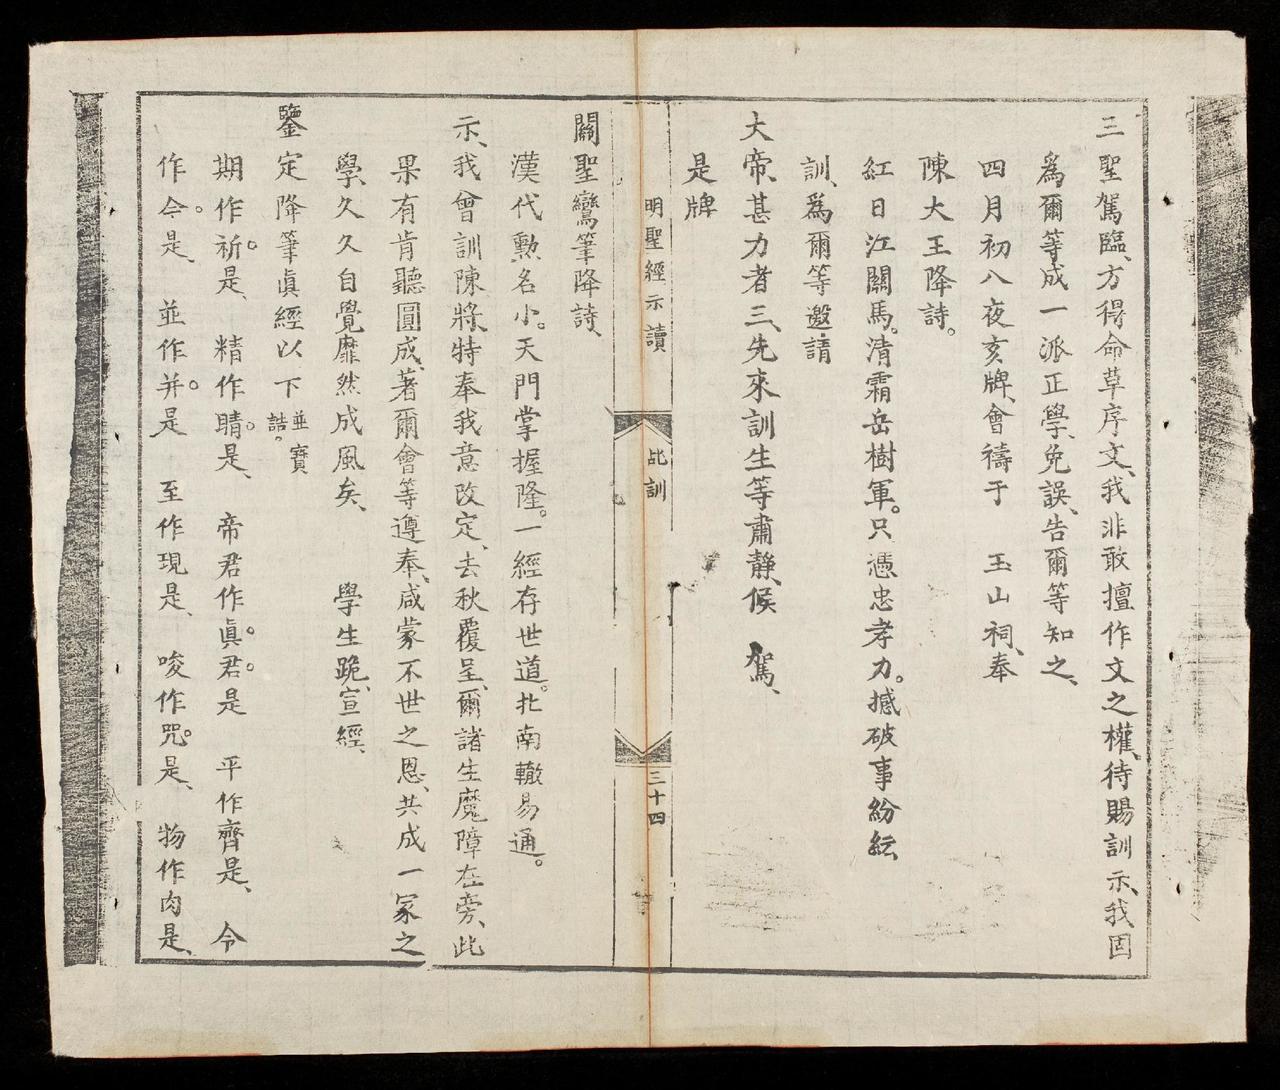 三聖駕臨、方得命草序文、我非敢擅作文之權、待賜訓示、我固
爲爾等成一派正學、免誤、告爾等知之、
四月初八夜亥牌、會禱于 玉山祠、奉
陳大王降詩。
紅日江關馬。清霜岳樹軍。只憑忠孝力。撼破事紛紜
訓、爲爾等邀請
大帝、甚力者三、先來訓生等肅靜、候 駕、
是牌
明聖經示讀 此訓 三十四
關聖鸞筆降詩、
漢代勲名小。天門掌握隆。一經存世道。北南轍易通。
示、我會訓陳將、特奉我意改定、去秋覆呈、爾諸生魔障在旁、此
果有肯聽圓成、著爾會等遵奉、咸蒙不世之恩、共成一家之
學、久久自覺靡然成風矣、 學生跪、宣經、
鑒定降筆眞經以下並寶誥。
期作祈是、 精作睛是、 帝君作眞君是 平作齊是、 令
作今是、 並作并是 至作現是、 唆作咒是、 物作肉是、